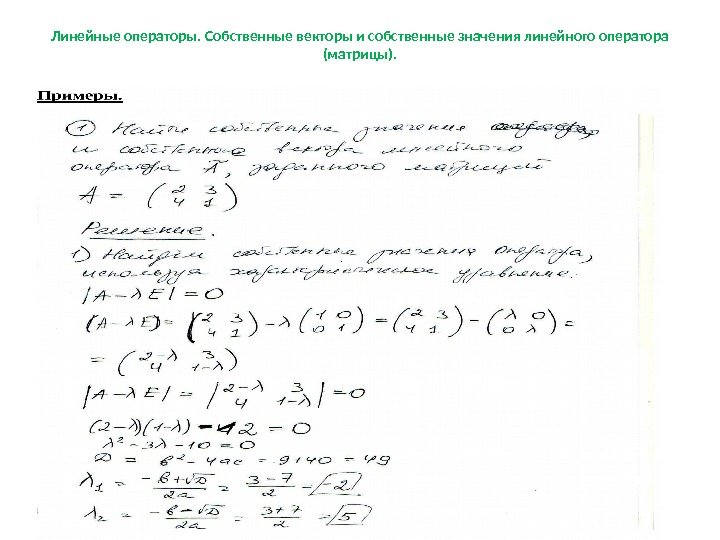 Линейные операторы. Собственные векторы и собственные значения линейного оператора
(матрицы).
Примеры.
① Найти собственные значения
и собственные вектора линейного
оператора Ã, заданного матрицей
A = (2 3
4 1)
Решение.
1) Найдём собственные значения оператора,
используя характеристическое уравнение:
|A-λE|=0
(A-λE)= (2 3
4 1) -λ (1 0
0 1) = (2 3
4 1) - (λ 0
0 λ) =
= (2-λ 3
4 1-λ)
|A-λE|= |2-λ 3
4 1-λ| =0
(2-λ)(1-λ) - 12 = 0
λ²-3λ-10=0
D = b²-4ac = 9+40 = 49
λ₁ = (-b+√D)/2a = (3-7)/2 = -2
λ₂ = (-b-√D)/2a = (3+7)/2 = 5